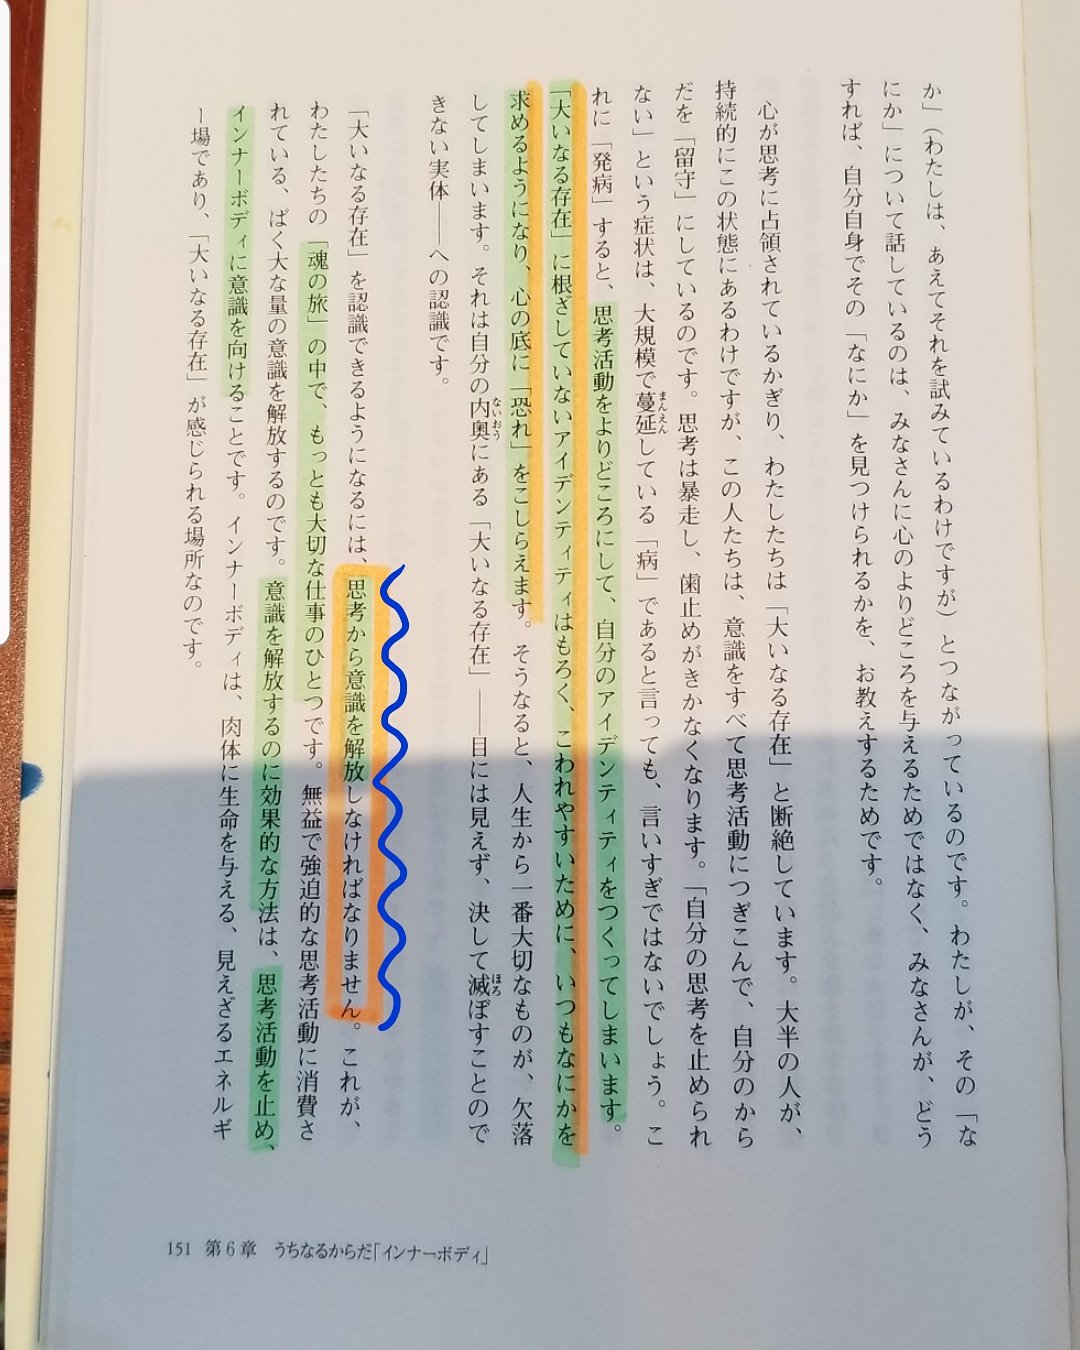 か」（わたしは、あえてそれを試みているわけですが）とつながっているのです。わたしが、その「な
にか」について話しているのは、みなさんに心のよりどころを与えるためではなく、みなさんが、どう
すれば、自分自身でその「なにか」を見つけられるかを、お教えするためです。
心が思考に占領されているかぎり、わたしたちは「大いなる存在」と断絶しています。大半の人が、
持続的にこの状態にあるわけですが、この人たちは、意識をすべて思考活動につぎこんで、自分のから
だを「留守」にしているのです。思考は暴走し、歯止めがきかなくなります。「自分の思考を止められ
ない」という症状は、大規模で蔓延している「病」であると言っても、言いすぎではないでしょう。こ
まんえん
れに「発病」すると、思考活動をよりどころにして、自分のアイデンティティをつくってしまいます。
「大いなる存在」に根ざしていないアイデンティティはもろく、こわれやすいために、いつもなにかを
求めるようになり、心の底に「恐れ」をこしらえます。そうなると、人生から一番大切なものが、欠落
してしまいます。それは自分の内奥にある「大いなる存在」――目には見えず、決して滅ぼすことので
ないおう
ほろ
きない実体――への認識です。
「大いなる存在」を認識できるようになるには、思考から意識を解放しなければなりません。これが、
わたしたちの「魂の旅」の中で、もっとも大切な仕事のひとつです。無益で強迫的な思考活動に消費さ
れている、ばく大な量の意識を解放するのです。意識を解放するのに効果的な方法は、思考活動を止め、
インナーボディに意識を向けることです。インナーボディは、肉体に生命を与える、見えざるエネルギ
ー場であり、「大いなる存在」が感じられる場所なのです。
151 第6章 うちなるからだ「インナーボディ」